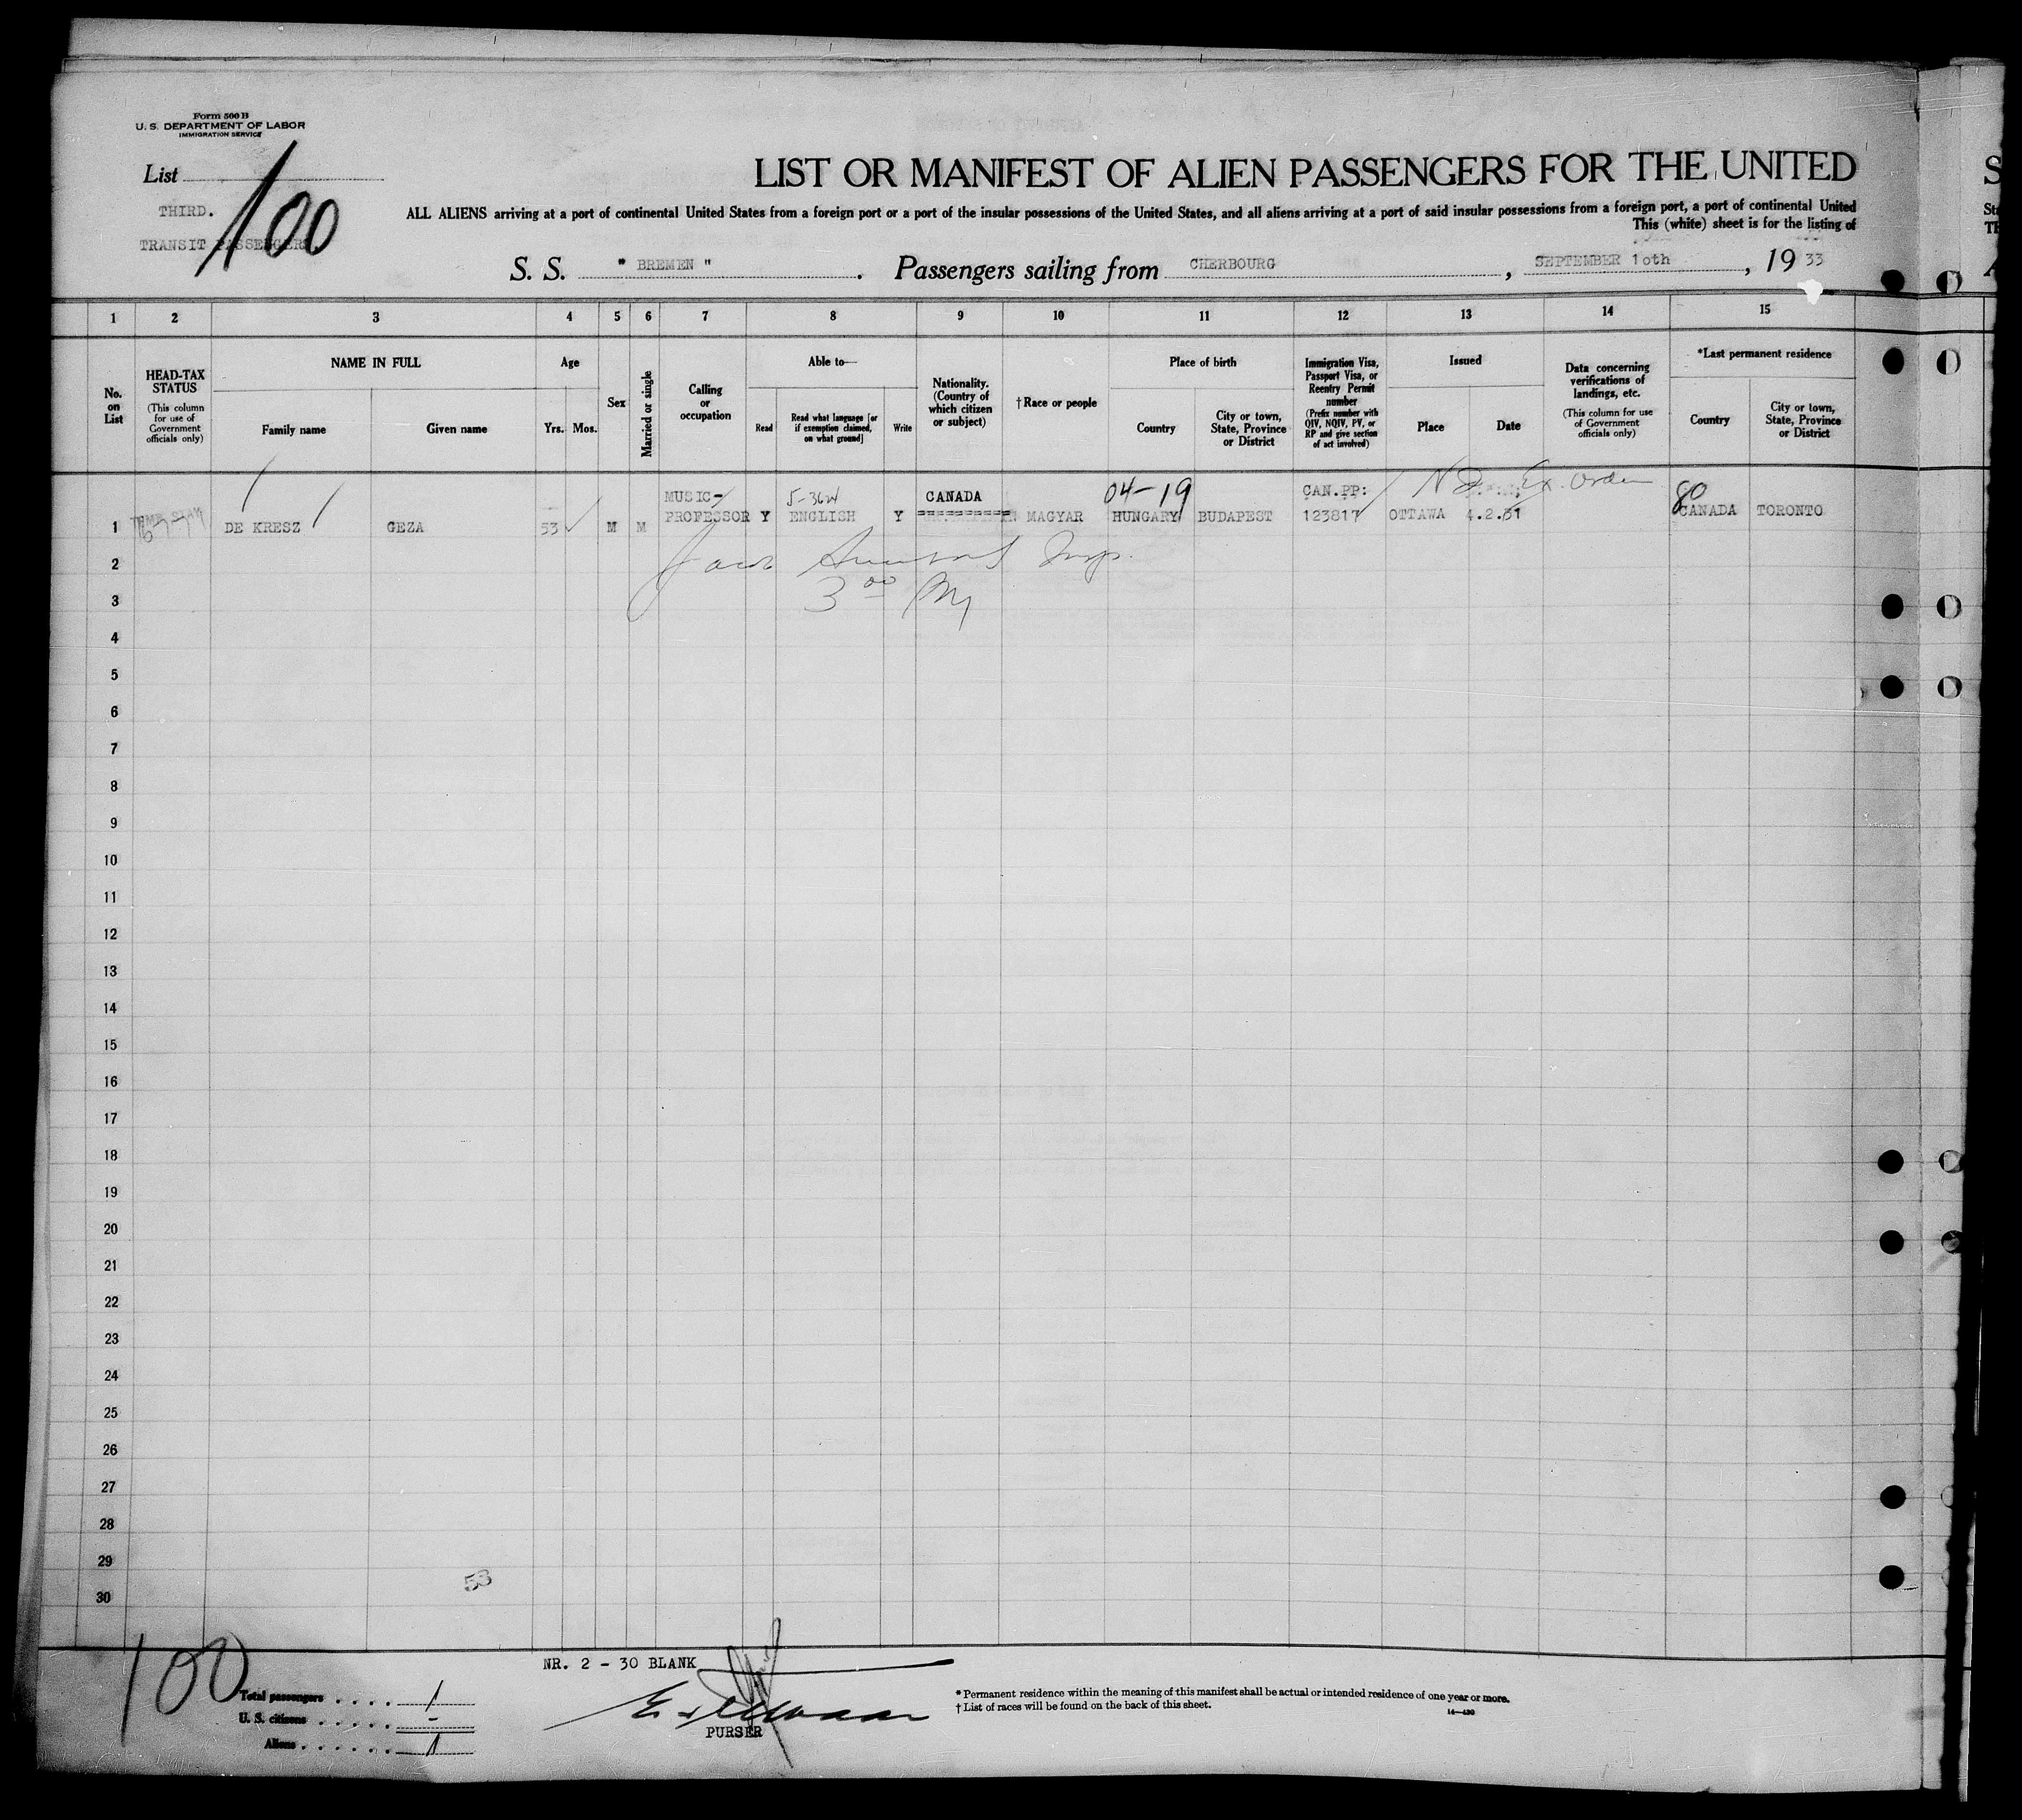 Form 500 B
U. S. DEPARTMENT OF LABOR
IMMIGRATION SERVICE
List
100
THIRD.
TRANSIT PASSENGERS.
LIST OR MANIFEST OF ALIEN PASSENGERS FOR THE UNITED
S
ALL ALIENS arriving at a port of continental United States from a foreign port or a port of the insular possessions of the United States, and all aliens arriving at a port of said insular possessions from a foreign port, a port of continental United
This (white) sheet is for the listing of
S. S. " BREMEN " . Passengers sailing from CHERBOURG , SEPTEMBER 1oth , 19 33
1 2 3 4 5 6 7 8 9 10 11 12 13 14 15
No. on List
HEAD-TAX STATUS
(This column for use of Government officials only)
NAME IN FULL
Family name
Given name
Age
Yrs. Mos.
Sex
Married or single
Calling or occupation
Able to—
Read
Read what language [or if exemption claimed, on what ground]
Write
Nationality. (Country of which citizen or subject)
† Race or people
Place of birth
Country
City or town, State, Province or District
Immigration Visa, Passport Visa, or Reentry Permit number
(Prefix number with QIV, NQIV, PV, or RP and give section of act involved)
Issued
Place
Date
Data concerning verifications of landings, etc.
(This column for use of Government officials only)
*Last permanent residence
Country
City or town, State, Province or District
MUSIC- 5-364 CANADA 04-19 CAN.PP: Ex. Order 80
1 DE KRESZ GEZA 53 M M PROFESSOR Y ENGLISH Y MAGYAR HUNGARY BUDAPEST 123817 OTTAWA 4.2.31 CANADA TORONTO
2 Insp.
3 3 00
4
5
6
7
8
9
10
11
12
13
14
15
16
17
18
19
20
21
22
23
24
25
26
27
28
29
53
30
100
NR. 2 - 30 BLANK
Total passengers . . . . 1
U. S. citizens . . . . . -
Aliens . . . . . . 1
PURSER
* Permanent residence within the meaning of this manifest shall be actual or intended residence of one year or more.
† List of races will be found on the back of this sheet.
14—430